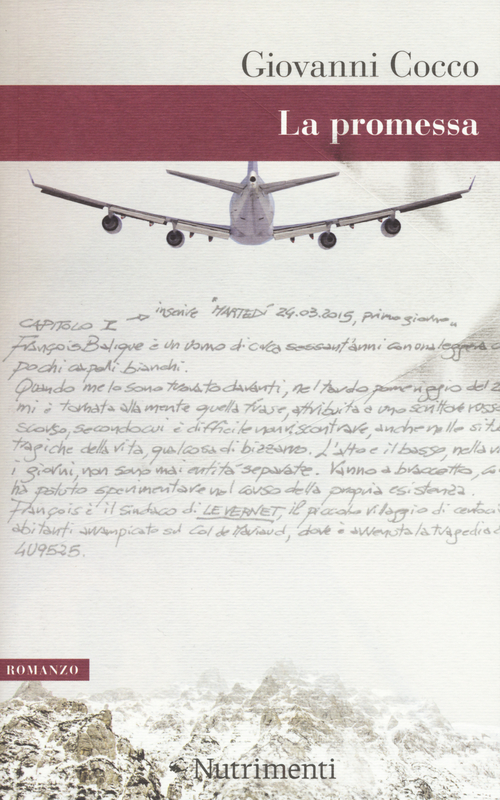 Giovanni Cocco
La promessa
CAPITOLO I → inserire "MARTEDÍ 24.03.2015, primo giorno"
François Balique è un uomo di circa sessant'anni con una leggera
pochi capelli bianchi.
Quando me lo sono trovato davanti, nel tardo pomeriggio del 2
mi è tornata alla mente quella frase, attribuita a uno scrittore russo
scorso, secondo cui è difficile non riscontrare, anche nelle situ
tragiche della vita, qualcosa di bizzarro. L'alto e il basso, nella
i giorni, non sono mai entità separate. Vanno a braccetto, co
ha potuto sperimentare nel corso della propria esistenza.
François è il sindaco di LE VERNET, il piccolo villaggio di
abitanti arrampicato sul Col de Mariaud, dove è avvenuta la tragedia
4U9525.
ROMANZO
Nutrimenti